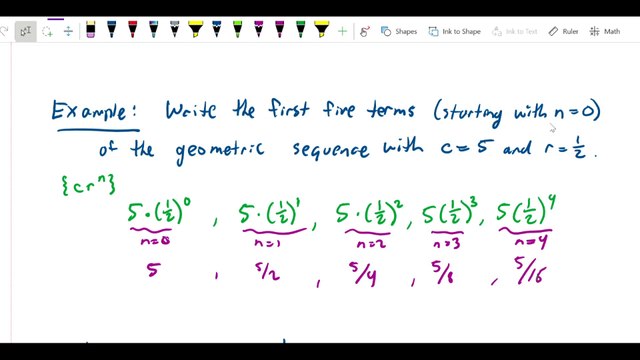 Shapes Ink to Shape Ink to Text Ruler Math
Example: Write the first five terms (starting with n=0)
of the geometric sequence with c = 5 and r = 1/2.
{cr^n}
5·(1/2)^0 , 5·(1/2)^1 , 5·(1/2)^2 , 5(1/2)^3 , 5(1/2)^4
n=0 n=1 n=2 n=3 n=4
5 , 5/2 , 5/4 , 5/8 , 5/16